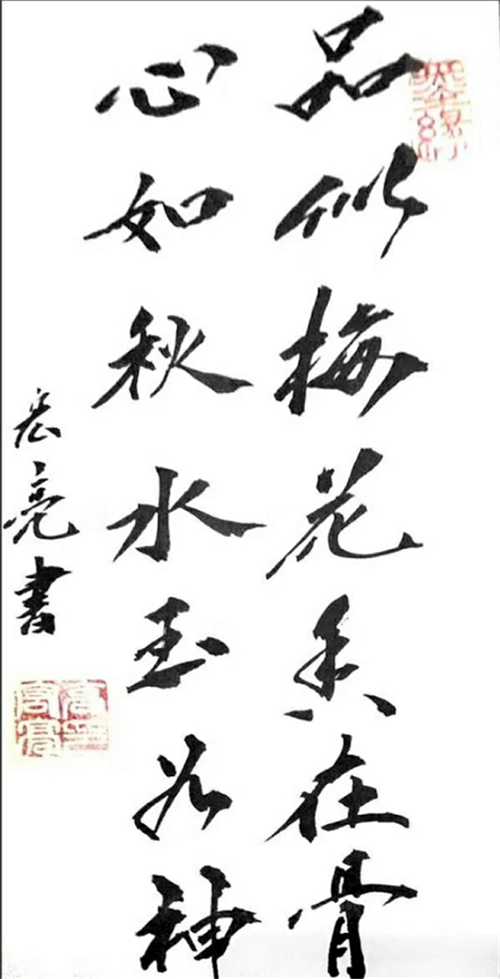 品似梅花香在骨
心如秋水玉为神
宏亮書